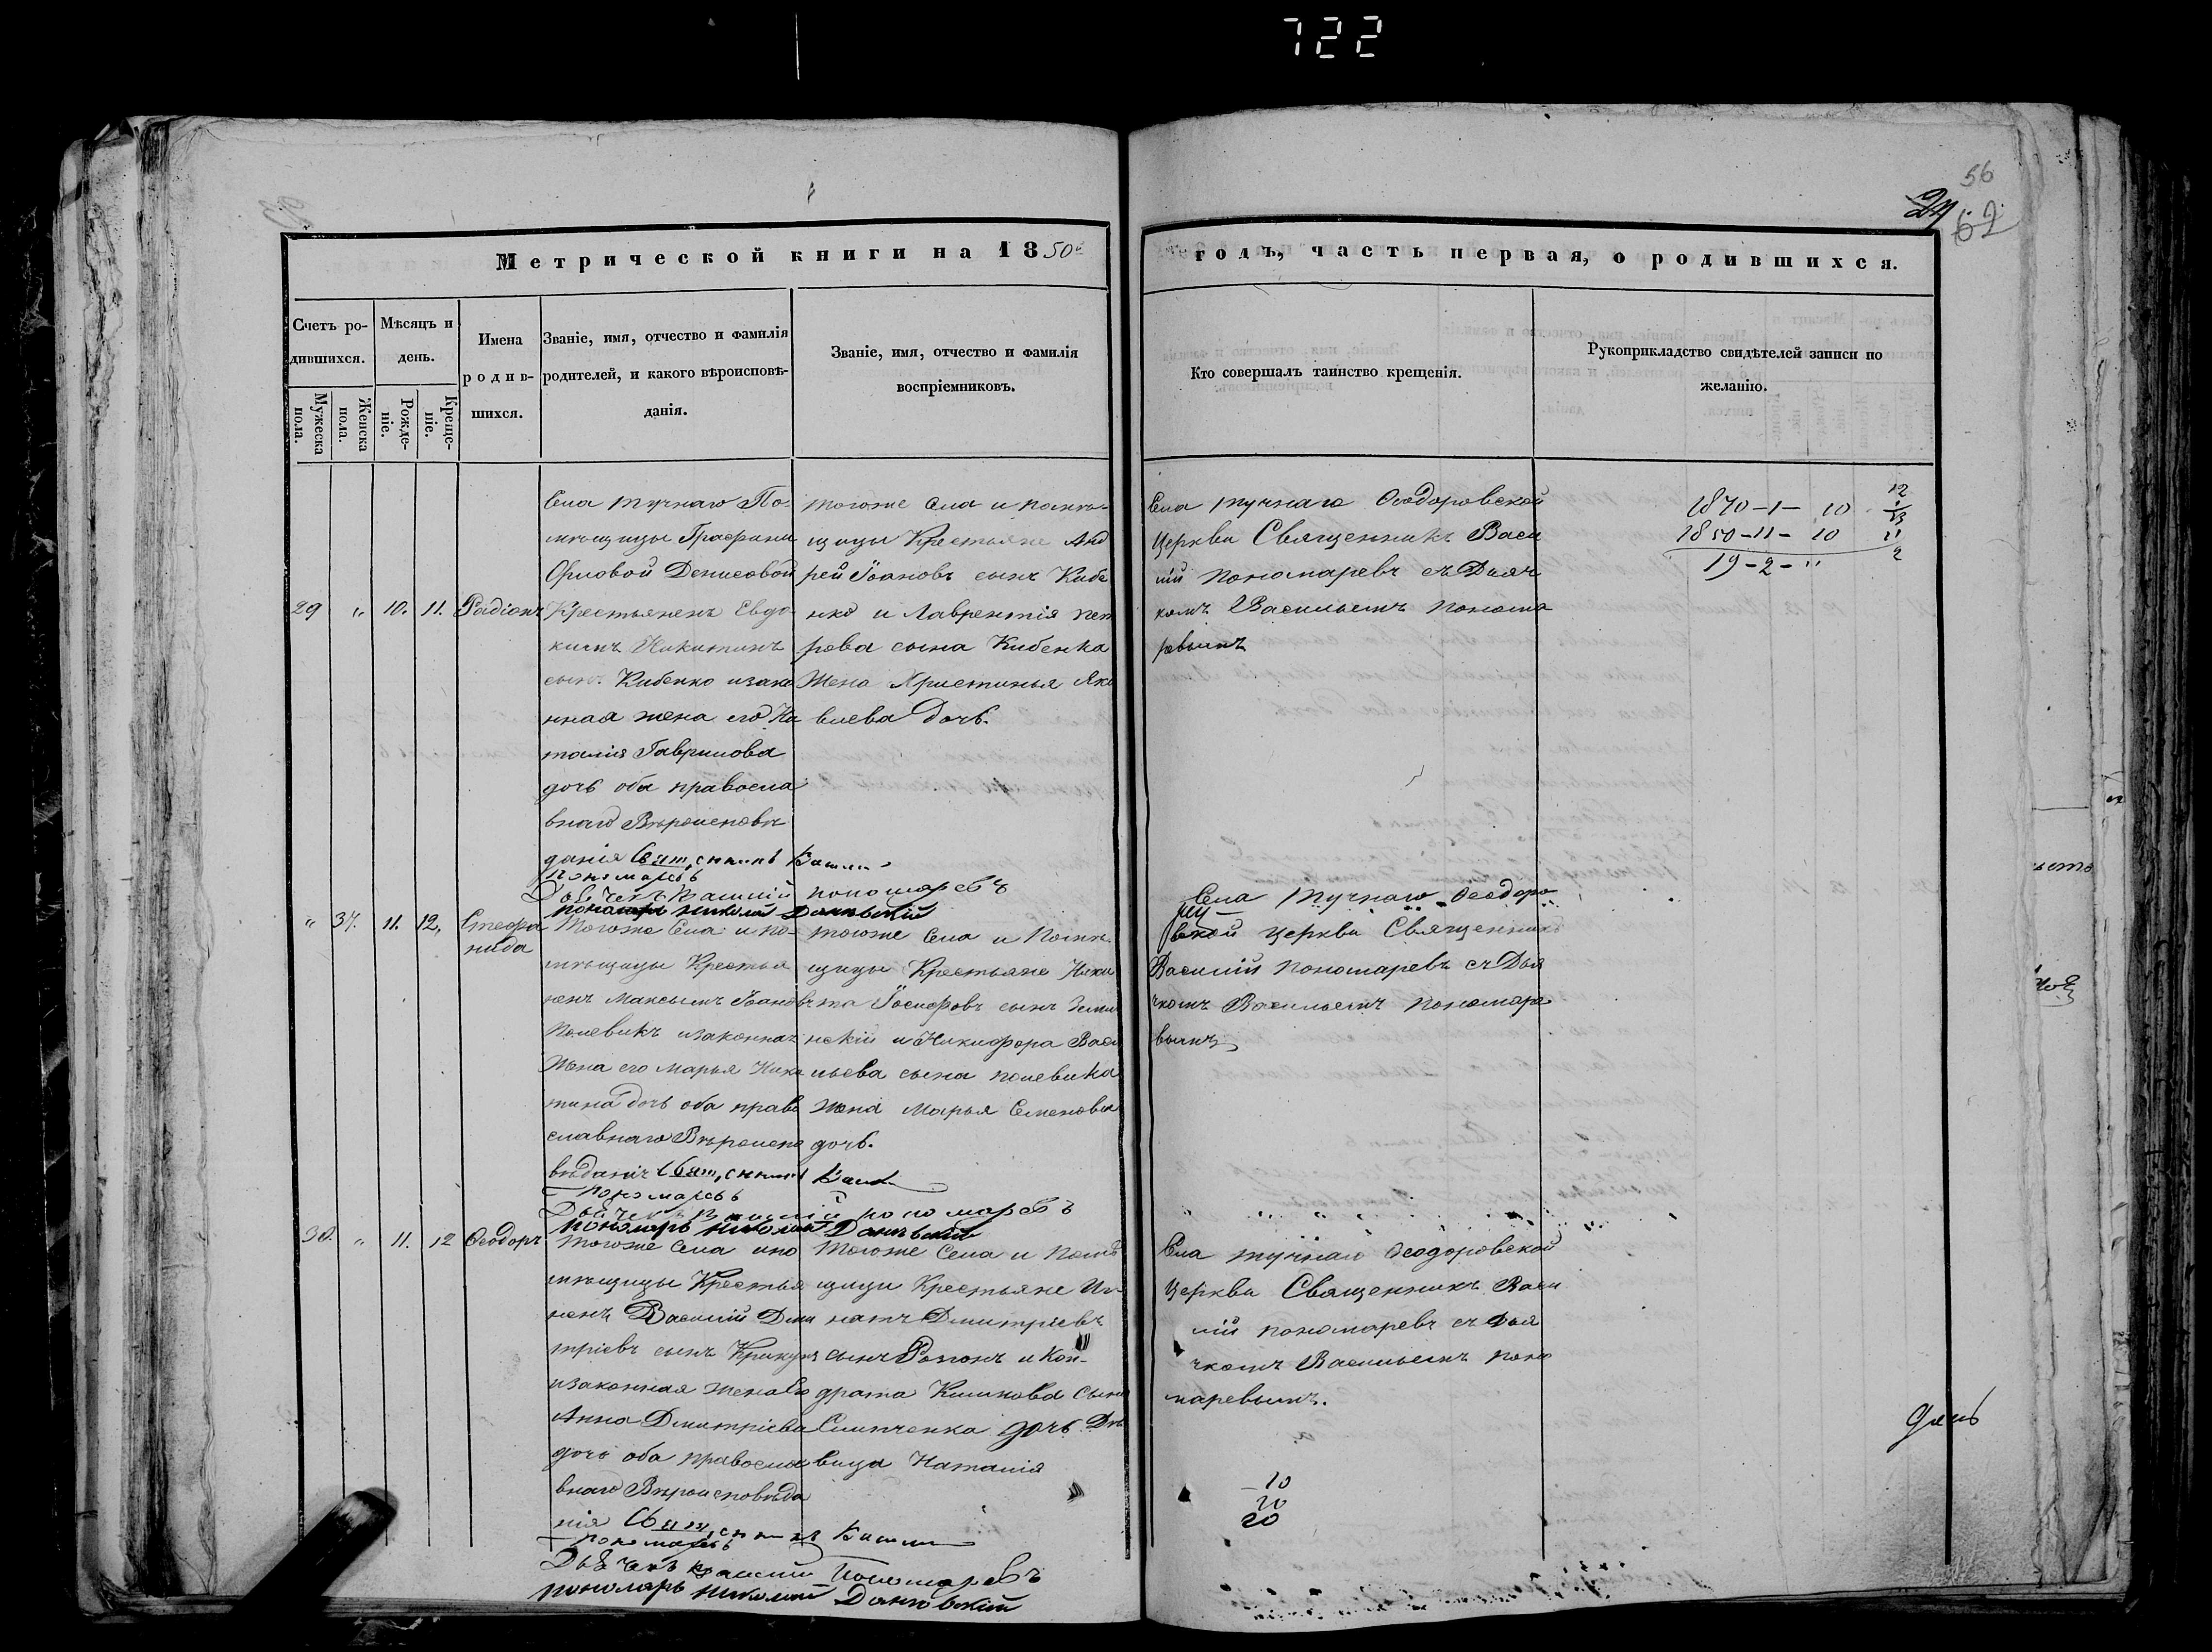 722
56
24
62
Метрической книги на 1850й
годъ, часть первая, о родившихся.
Счетъ ро-
дившихся.
Мужеска
пола.
Женска
пола.
Мѣсяцъ и
день.
Рожде-
ніе.
Креще-
ніе.
Имена
родив-
шихся.
Званіе, имя, отчество и фамилія
родителей, и какого вѣроисповѣ-
данія.
Званіе, имя, отчество и фамилія
воспріемниковъ.
Кто совершалъ таинство крещенія.
Рукоприкладство свидѣтелей записи по
желанію.
29 „ 10. 11. Радіонъ
Села тучнаго По-
мѣщицы Графини
Орловой Денисовой
Крестьяненъ Евдо-
кимъ Никитинъ
сынъ Кибенко изако
нная жена его На
талія Гаврилова
дочь оба правосла
внаго Вѣроисповѣ
данія Свящ,
Пономаревъ
пономаревъ
пономарь Николай
тогоже Села и помѣ-
щицы Крестьяне Анд
рей Іоановъ сынъ Кибе
нко и Лаврентія пет
рова сына Кибенка
Жена Христинья Яко
влева дочь.
Села тучнаго Ѳеодоровской
Церкви Священникъ Васи
лій Пономаревъ съ Дьяч
комъ Васильемъ Понома
ревымъ
1870-1-10
1850-11-10
19-2-"
12
„ 37. 11. 12. Стефа
нида
Тогоже Села и по-
мѣщицы Крестья
ненъ Максымъ Іоановъ
Полевикъ изаконная
Жена его Марья Ники
тина дочь оба право
славнаго Вѣроиспо
вѣданія Свящ,
Пономаревъ
пономаревъ
пономарь Николай
тогоже Села и Помѣ-
щицы Крестьяне Ники
та Іосифовъ сынъ
нскій и Никифора Васи
льева сына полевика
жена Марья Семенова
дочь.
Села Тучнаго Ѳеодоро
вской церкви Священникъ
Василій Пономаревъ съ Дья
чкомъ Васильемъ Пономаре
вымъ
30. „ 11. 12 Ѳеодоръ
Тогоже Села ипо
мѣщицы Крестья
ненъ Василій Дми
тріевъ сынъ Крикунъ
изаконная жена Его
Анна Дмитріева
дочь оба правосла
внаго Вѣроисповѣда
нія Свящ,
Пономаревъ
Пономаревъ
пономарь Николай
Тогоже Села и Помѣ
щици Крестьяне Иг-
натъ Дмитріевъ
сынъ и Кон-
драта Климова Сына
дочь Дѣ
вица Наталія
Села тучнаго Ѳеодоровской
Церкви Священникъ Васи
лій пономаревъ съ Дья
чкомъ Васильемъ Поно
маревымъ.
10
20
20